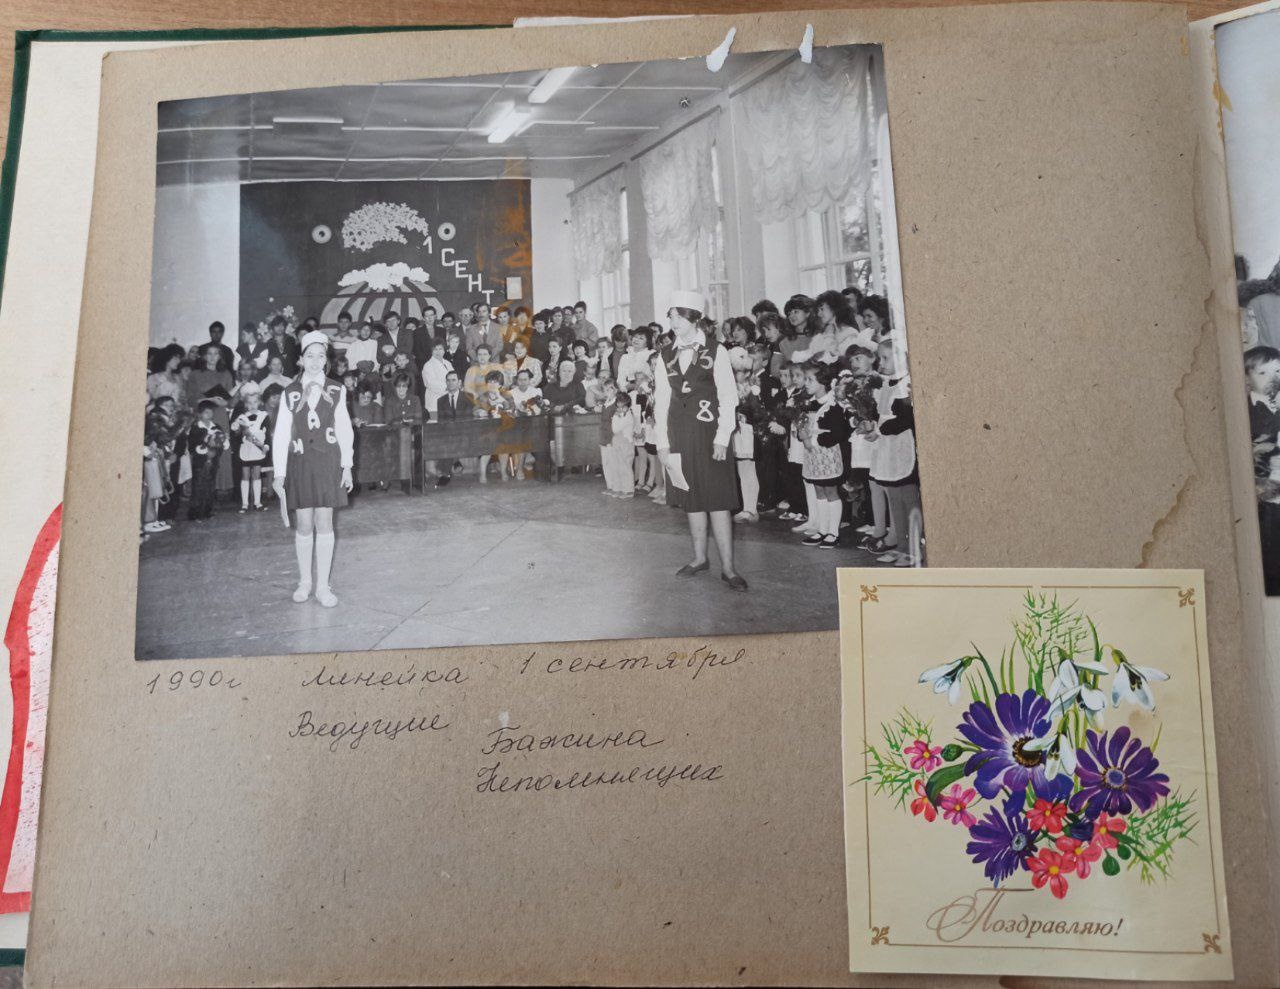 1 СЕНТ
1990г Линейка 1 сентября
Ведущие Бажина
Непомнящих
Поздравляю!